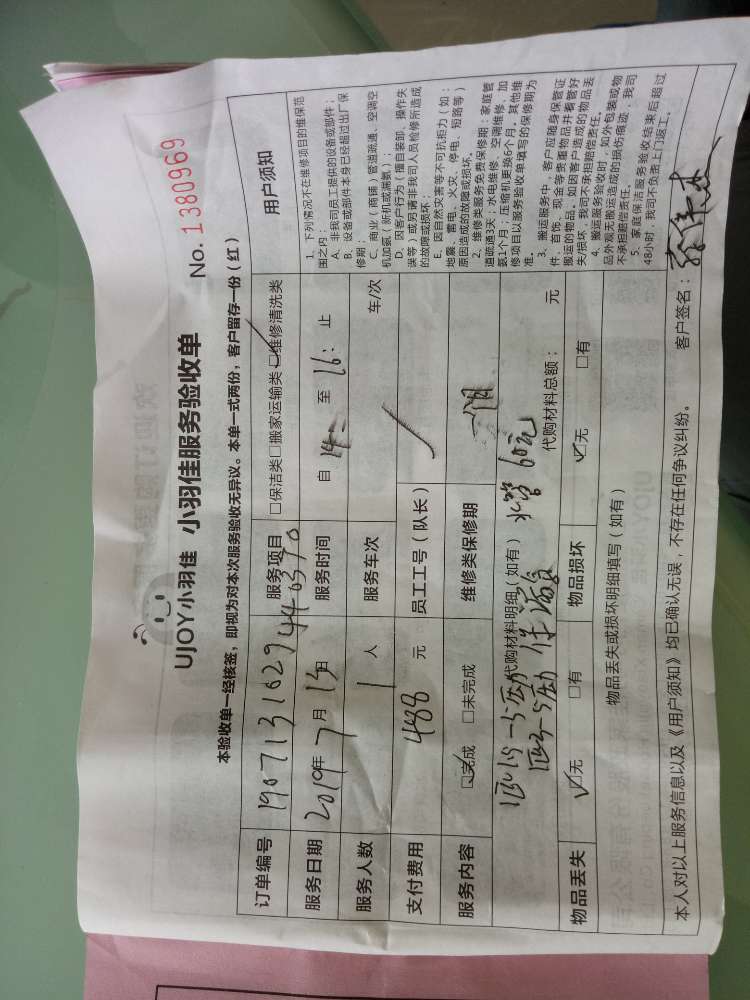 UJOY小羽佳 小羽佳服务验收单 No. 1380969
本验收单一经核签，即视为对本次服务验收无异议。本单一式两份，客户留存一份（红）
订单编号 190713162944 0390 服务项目 □保洁类□搬家运输类☑维修清洗类
服务日期 2019年7月13日 服务时间 自 14: 至 16: 止
服务人数 1 人 服务车次 车/次
支付费用 488 元 员工工号（队长） /
服务内容 ☑完成 □未完成 维修类保修期 一个月
代购材料明细（如有） 水管 60元 代购材料总额： 元
物品丢失 ☑无 □有 物品损坏 ☑无 □有
物品丢失或损坏明细填写（如有）
本人对以上服务信息以及《用户须知》均已确认无误，不存在任何争议纠纷。 客户签名：
用户须知
1. 下列情况不在维修项目的维保范
围之内：
A. 非我司员工提供的设备或部件；
B. 设备或部件本身已经超过出厂保
修期；
C. 商业（商铺）管道疏通、空调空
机加氨（新机或漏氨）；
D. 因客户行为（擅自装卸、操作失
误等）或另请非我司人员检修所造成
的故障或损坏；
E. 因自然灾害等不可抗拒力（如：
地震、雷电、火灾、停电、短路等）
原因造成的故障或损坏。
2. 维修类服务免费保修期：家庭管
道疏通3天；水电维修、空调维修、加
氨1个月；压缩机更换6个月，其他维
修项目以服务验收单填写的保修期为
准。
3. 搬运服务中，客户应随身保管证
件、首饰、现金等贵重物品并看管好
搬运的物品，如因客户造成的物品丢
失/损坏，我司不承担赔偿责任。
4. 搬运服务验收时，如外包装或物
品外观无搬运造成的损伤痕迹，我司
不承担赔偿责任。
5. 家庭保洁服务验收结束后超过
48小时，我司不负责上门返工。